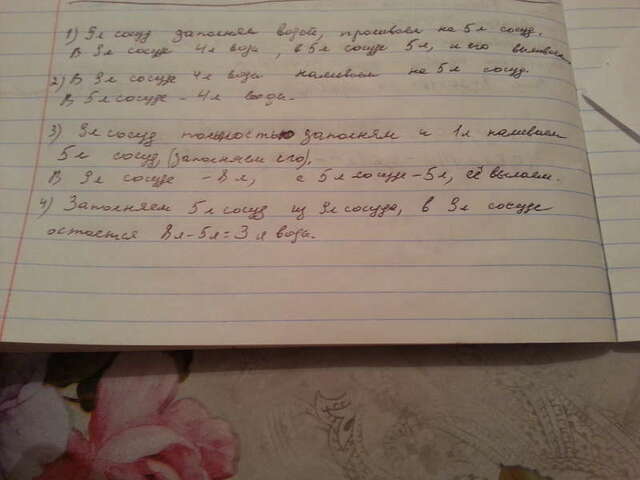 1) 9л сосуд заполняем водой, проливаем на 5л сосуд.
В 9л сосуде 4л воды, в 5л сосуде 5л, и его выливаем
2) В 9л сосуде 4л воды наливаем на 5л сосуд.
В 5л сосуде - 4л воды.
3) 9л сосуд полностью заполням и 1л наливаем
5л сосуд, (заполняем его),
В 9л сосуде - 8л, а 5л сосуде - 5л, её вылаем.
4) Заполняем 5л сосуд из 9л сосуда, в 9л сосуде
остается 8л-5л=3л воды.